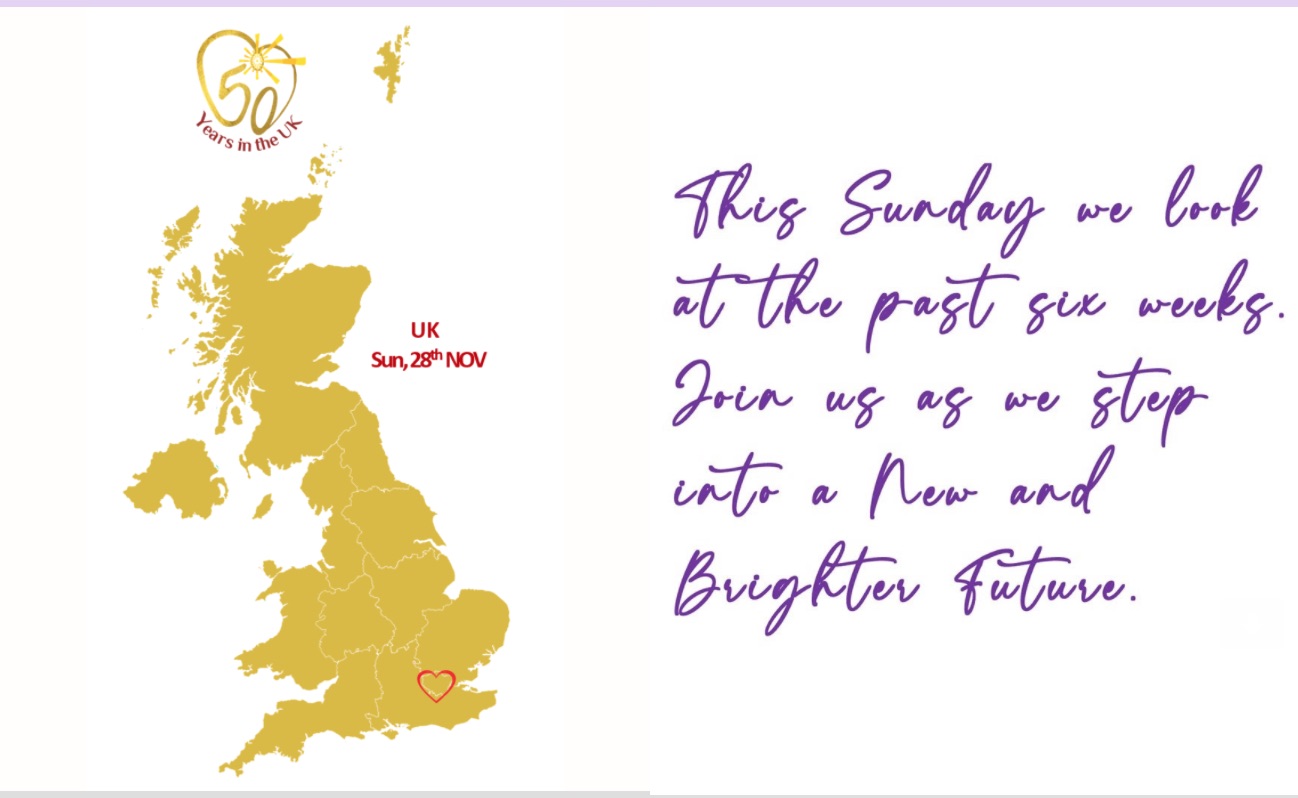 50
Years in the UK
UK
Sun, 28th NOV
This Sunday we look
at the past six weeks.
Join us as we step
into a New and
Brighter Future.